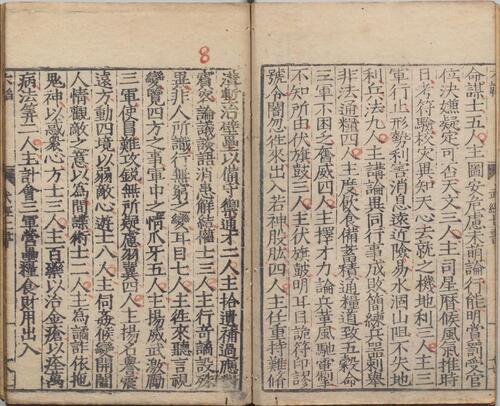 命謀士五人主圖安危慮未萌論行能明賞罰受官
位決嫌疑定可否天文三人主司星曆候風氣推時
日考符驗校災異知天心去就之機地利三人主三
軍行止形勢利害消息遠近險易水涸山阻不失地
利兵法九人主講論異同行事成敗簡練兵器刺舉
非法通糧四人主度飲食備蓄積通糧道致五穀命
三軍不困乏奮威四人主擇才力論兵革風馳電掣
不知所由伏旗鼓三人主伏旗鼓明耳目詭符印謬
號令闇忽往來出入若神股肱四人主任重持難脩
8
溝塹治壁壘以備守禦通才二人主拾遺補過應對
賓客論議談語消患解結權士三人主行奇譎設殊
異非人所識行無窮之變耳目七人主往來聽言視
變覽四方之事軍中之情爪牙五人主揚威武激勵
三軍使冒難攻銳無所疑慮羽翼四人主揚名譽震
遠方動四境以弱敵心遊士八人主伺姦候變開闔
人情觀敵之意以為間諜術士二人主為譎詐依托
鬼神以惑衆心方士三人主百藥以治金瘡以痊萬
病法筭二人主計會三軍營壘糧食財用出入
六韜